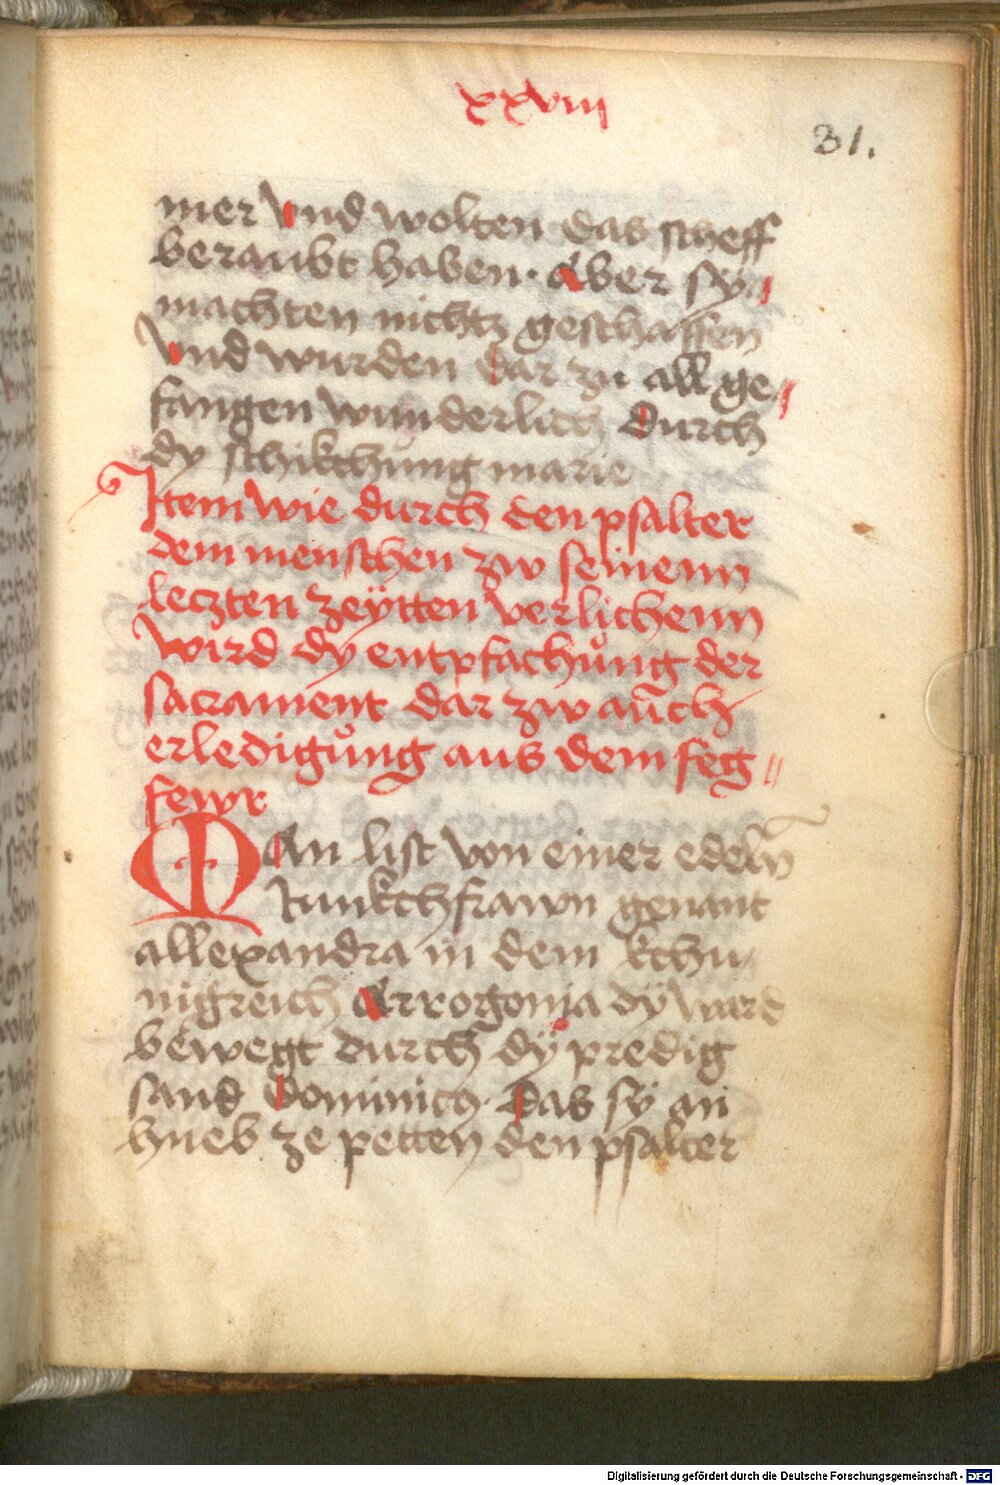 xxviii
31.
mer vnd wolten das scheff
beraubt haben. Aber sy
machten nichtz geschaffen
vnd wurden dar zu all ge„
fangen wunderlich durch
dy schikchung marie
Item wie durch den psalter
dem menschen zw seinenn
leczten zeÿtten verlichenn
wird dy entpfachůng der
sacrament dar zw auch
erledigůng aus dem feg„
fewr
MAn list von einer edeln
Iunkchfrawn genant
allexandra in dem kchu„
nigreich Arrogonia dÿ ward
bewegt durch dÿ predig
sand dominicy. das sÿ an
hueb ze petten den psalter
Digitalisierung gefördert durch die Deutsche Forschungsgemeinschaft - DFG